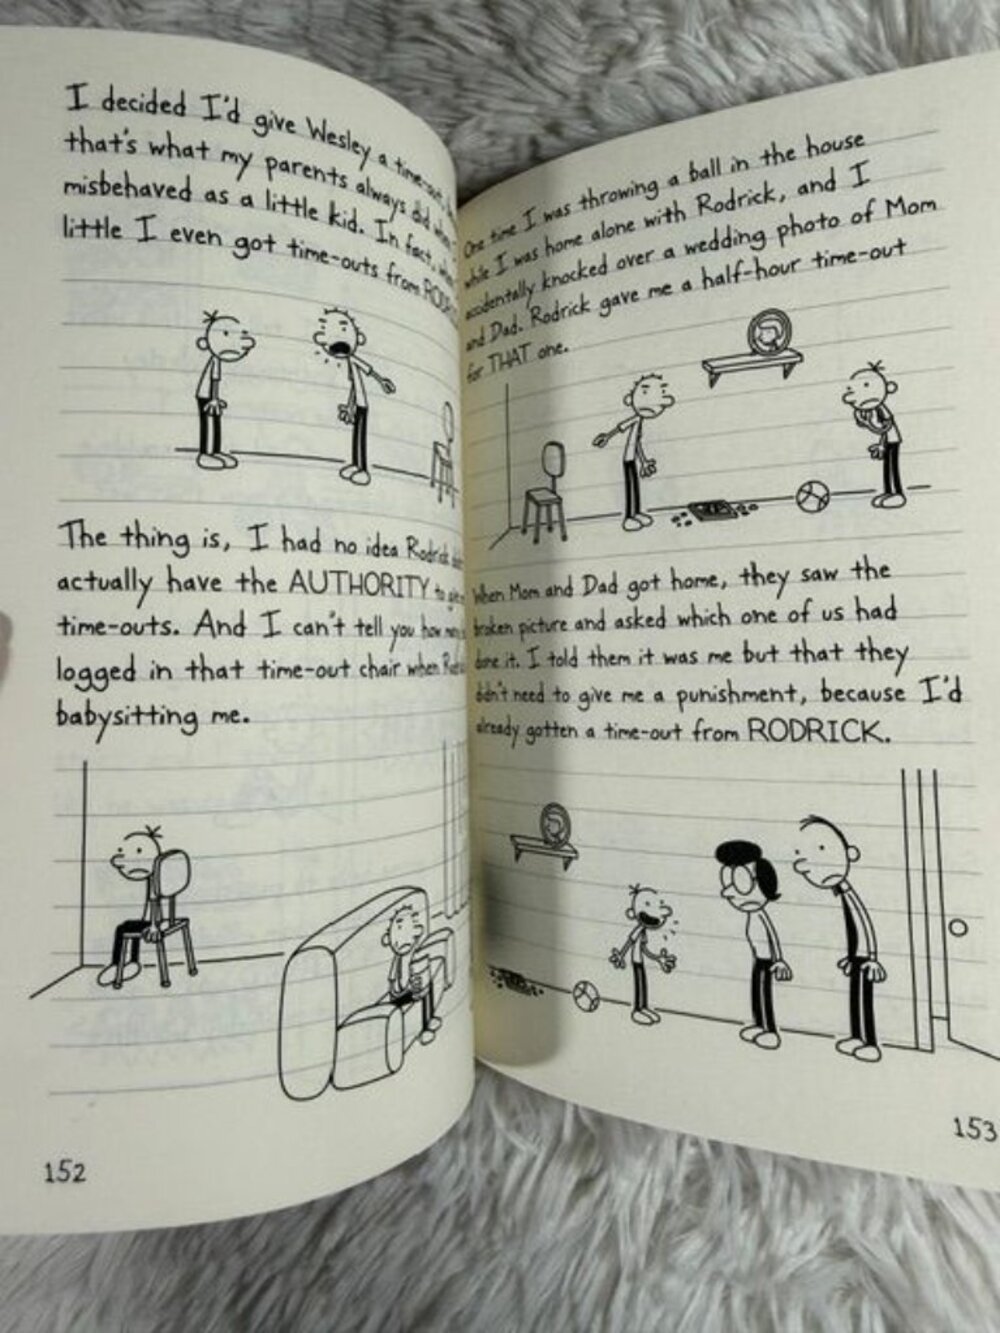 I decided I'd give Wesley a time-out,
that's what my parents always did when
misbehaved as a little kid. In fact,
little I even got time-outs from
The thing is, I had no idea Rodrick
actually have the AUTHORITY to
time-outs. And I can't tell you how
logged in that time-out chair when
babysitting me.
152
One time I was throwing a ball in the house
while I was home alone with Rodrick, and I
accidentally knocked over a wedding photo of Mom
and Dad. Rodrick gave me a half-hour time-out
for THAT one.
When Mom and Dad got home, they saw the
broken picture and asked which one of us had
done it. I told them it was me but that they
didn't need to give me a punishment, because I'd
already gotten a time-out from RODRICK.
153